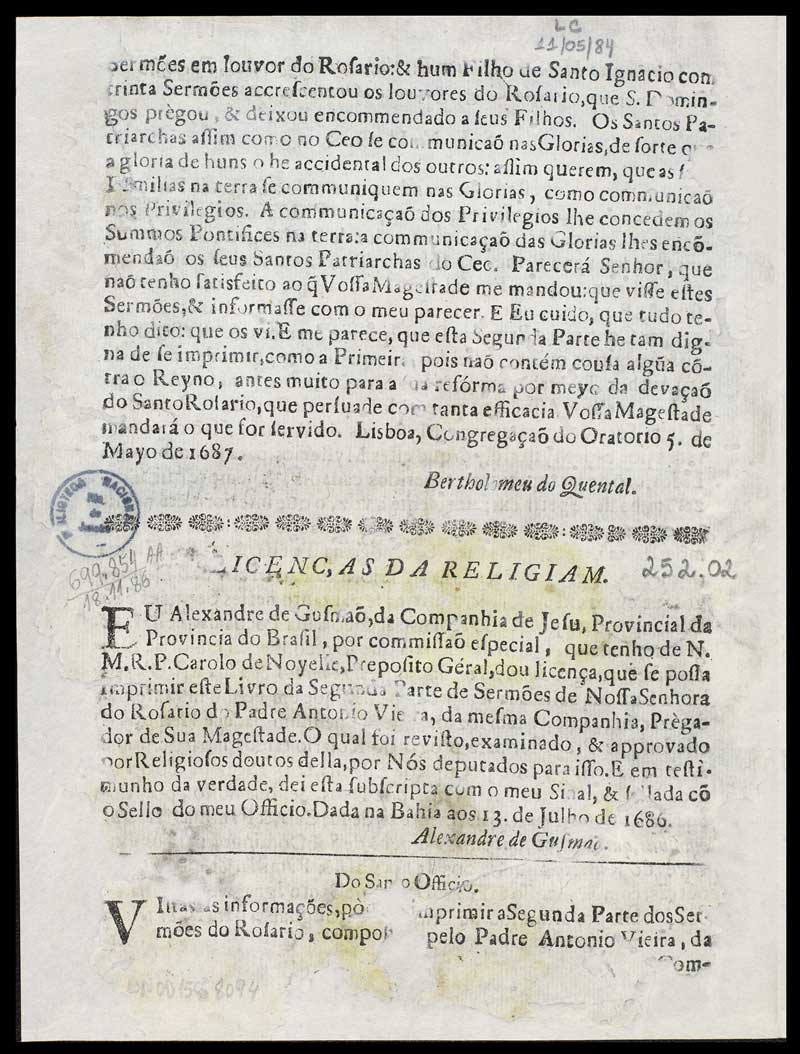 LC
11/05/84
Sermões em louvor do Rosario:& hum Filho de Santo Ignacio com
trinta Sermões accrescentou os louvores do Rosario,que S. Domin-
gos prègou, & deixou encommendado a seus Filhos. Os Santos Pa-
triarchas assim como no Ceo se communicaõ nas Glorias,de sorte que
a gloria de huns o he accidental dos outros: assim querem, que as
Familias na terra se communiquem nas Glorias, como communicaõ
nos Privilegios. A communicaçaõ dos Privilegios lhe concedem os
Summos Pontifices na terra:a communicaçaõ das Glorias lhes encõ-
mendaõ os seus Santos Patriarchas do Ceo. Parecerá Senhor, que
naõ tenho satisfeito ao q̃ Vossa Magestade me mandou:que visse estes
Sermões,& informasse com o meu parecer. E Eu cuido, que tudo te-
nho dito: que os vi.E me parece, que esta Segunda Parte he tam dig-
na de se imprimir,como a Primeira pois naõ contém cousa algũa cõ-
tra o Reyno, antes muito para a sua refórma por meyo da devaçaõ
do Santo Rosario,que persuade com tanta efficacia Vossa Magestade
mandará o que for servido. Lisboa, Congregaçaõ do Oratorio 5. de
Mayo de 1687.
Bertholomeu do Quental.
BIBLIOTECA NACIONAL
Rio de Janeiro
699.854 AA
18.11.86
LICENC,AS DA RELIGIAM.
252.02
EU Alexandre de Gusmaõ,da Companhia de Jesu, Provincial da
Provincia do Brasil, por commissaõ especial, que tenho de N.
M.R.P.Carolo de Noyelle,Preposito Géral,dou licença,que se possa
imprimir este Livro da Segunda Parte de Sermões de Nossa Senhora
do Rosario do Padre Antonio Vieira, da mesma Companhia, Prèga-
dor de Sua Magestade.O qual foi revisto,examinado, & approvado
por Religiosos doutos della,por Nós deputados para isso.E em testi-
munho da verdade, dei esta subscripta com o meu Sinal, & sellada cõ
o Sello do meu Officio.Dada na Bahia aos 13. de Julho de 1686.
Alexandre de Gusmaõ.
Do Santo Officio.
VIstas as informações,pòde imprimir a Segunda Parte dos Ser-
mões do Rosario, pelo Padre Antonio Vieira, da
Com-